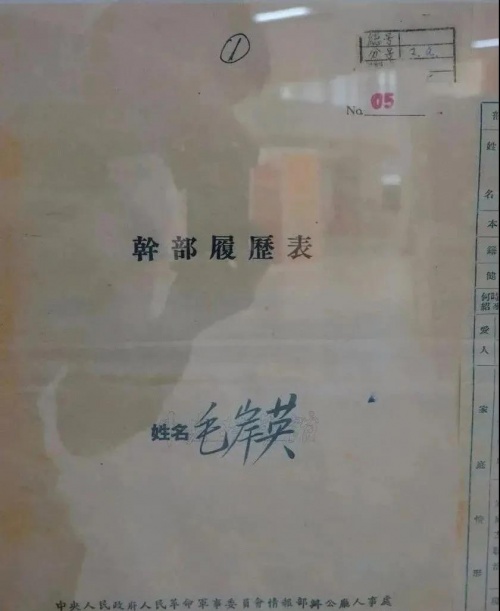 ①
編号
分号 2.2.
No. 05
幹部履歷表
姓名 毛岸英
中央人民政府人民革命軍事委員會情報部辦公廳人事處
姓
名
本
籍
何
愛
人
家
庭
情